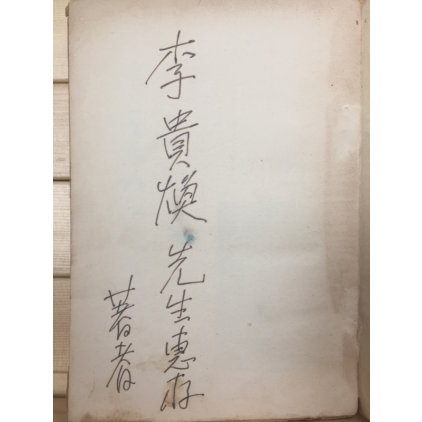 李貴煥先生惠存
著者